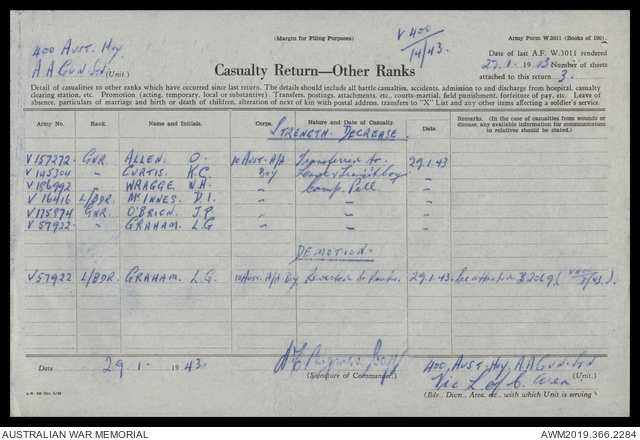 (Margin for Filing Purposes)
Army Form W.3011 (Books of 100).
V400
/14/43.
400 Aust. Hvy
A A Gun Stn (Unit.)
Date of last A.F. W.3011 rendered
27.1. 1943 Number of sheets
attached to this return 3.
Casualty Return—Other Ranks
Detail of casualties to other ranks which have occurred since last return. The details should include all battle casualties, accidents, admission to and discharge from hospital, casualty
clearing station, etc. Promotion (acting, temporary, local or substantive). Transfers, postings, attachments, etc., courts-martial, field punishment, forfeiture of pay, etc. Leave of
absence, particulars of marriage and birth or death of children, alteration of next of kin with postal address, transfers to "X" List and any other items affecting a soldier's service.
Army No. Rank. Name and Initials. Corps. Nature and Date of Casualty. Date. Remarks. (In the case of casualties from wounds or disease, any available information for communication to relatives should be stated.)
STRENGTH DECREASE
V157272 Gnr. ALLEN O. 10 Aust. A/A Transferred to 29.1.43
V145304 " CURTIS. K.C. Bty
V186992 " WRAGGE W.H. " Camp. Pell. "
V16416 L/BDR. McINNES. D.I. " " "
V125874 GNR. O'BRIEN J.P. " " "
V57922 " GRAHAM. L.G " " "
DEMOTION.
V57922 L/BDR. GRAHAM. L.G. 10 Aust. A/A Bty Reverted to Ranks. 29.1.43.
Date 29.1. 1943.
(Signature of Commander.)
400, Aust. Hvy, A A Gun. Stn
(Unit.)
Vic L of C. Area
(Bde., Dion., Area, etc., with which Unit is serving)
AUSTRALIAN WAR MEMORIAL
AWM2019.366.2284